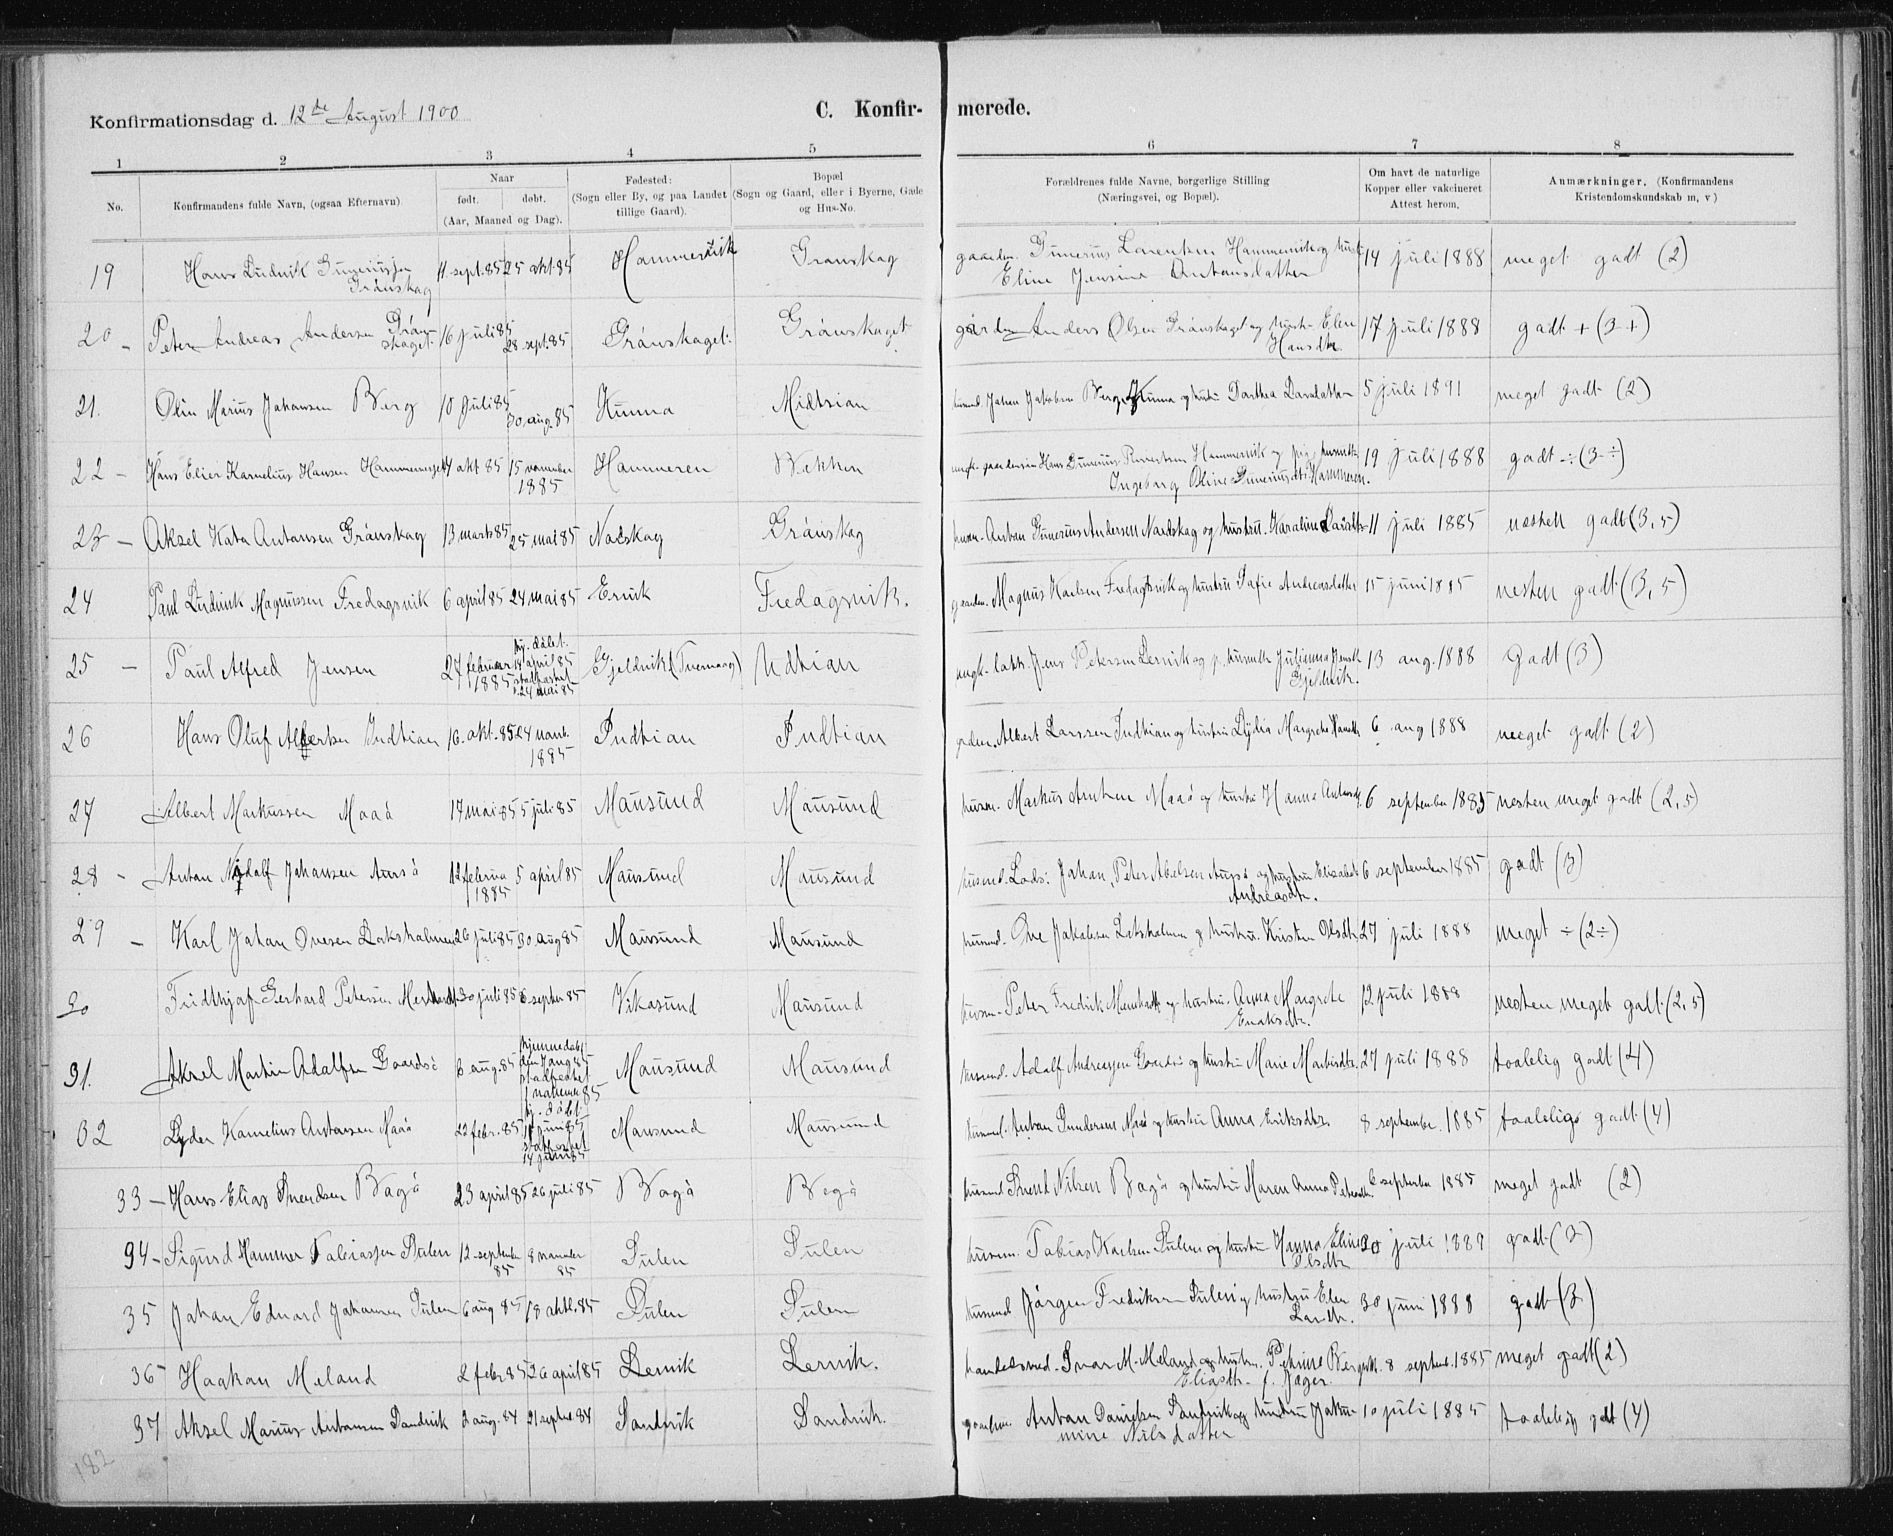 Konfirmationsdag d. 12de August 1900
C. Konfir- merede.
1 2 3 4 5 6 7 8
No. Konfirmandens fulde Navn, (ogsaa Efternavn) Naar født. døbt. (Aar, Maaned og Dag). Fødested: (Sogn eller By, og paa Landet tillige Gaard). Bopæl (Sogn og Gaard, eller i Byerne, Gade og Hus-No. Forældrenes fulde Navne, borgerlige Stilling (Næringsvei, og Bopæl). Om havt de naturlige Kopper eller vakcineret Attest herom. Anmærkninger, (Konfirmandens Kristendomskundskab m, v)
19 Hans Ludvik Gunerius 11 sept. 85 25 okt. 85 Hammervik Grønskag Gunerius Lorentsen Hammervik og 14 juli 1888 meget godt (2)
Grønskag Eline Jensine Antonsdatter
20 - Peter Andreas Andersen Grøn- 16 juli 85 28 sept. 85 Grønskaget. Grønskaget Anders Olsen Grønskaget og Elen 17 juli 1888 godt + (3+)
skaget. Hansdtr.
21. Olin Marius Johansen Berg 10 juli 85 30 aug. 85 Kunna Midtsian Johan Jakobsen Berg Kunna og Dorthea Larsdatter 5 juli 1891 meget godt (2)
22 - Hans Elier Kornelius Hansen 4 okt 85 15 november 1885 Hammeren Bekken Hans Gunerius Hammervik og 19 juli 1888 godt ÷ (3÷)
Ingeborg Oline Hammeren.
23 - Aksel Kato Antonsen Grønskag 13 marts 85 25 mai 85 Nordskag Grønskag Anton Gunerius Andersen Nordskag og hustru. Karoline 11 juli 1885 nesten godt (3,5)
24 Paul Ludvik Magnussen Fredagsvik 6 april 85 24 mai 85 Ervik Fredagsvik. Magnus Karlsen Fredagsvik og hustru Andreasdatter 15 juni 1885 nesten godt (3,5)
25 - Paul Alfred Jensen 27 februar 1885 hj. døbt. 14 april 85 stadfæstet 24 mai 85 Gjeldvik Udtian Jens Petersen Lervik og Julianna 13 aug. 1888 Godt (3)
Gjeldvik.
26 Hans Oluf Albertsen Indtian 16. okt. 85 24 novb. 1885 Indtian Indtian Albert Larssen Indtian og hustru Lydia Margrete 6 aug 1888 meget godt (2)
27 Albert Markussen Maaø 17 mai 85 5 juli 85 Mausund Mausund Markus Maaø og hustru Hanna 6 september 1885 nesten meget godt (2,5)
28 - Anton Johansen Aursø 12 februa 1885 5 april 85 Mausund Mausund husmd. Lods. Johan Peter Abelsen Aursø og hustru Elisabet 6 september 1885 godt (3)
Andreasdtr.
29 - Karl Johan Ovesen Laksholmen 26 juli 85 30 aug 85 Mausund Mausund husmd. Ove Jakobsen Laksholmen og hustru. Kristen Olsdtr 27 juli 1888 meget ÷ (2÷)
30 Fridthjof Gerhard Petersen 30 juli 85 6 septbr 85 Vikasund Mausund Peter Fredrik og hustru. Anna Margrete 12 juli 1888 nesten meget godt (2,5)
31. Aksel Martin Adolfsen Gaardsø 6 aug. 85 hjemmedøbt Mausund Mausund husmd. Adolf Andreassen og hustru Marie 27 juli 1888 taalelig godt (4)
32 Lyder Kornelius Antonsen Maaø 22 febr. 85 hj. døbt. stadfæstet 14 juni 85 Mausund Mausund husmd. Anton Gundersen Maaø og hustru Anna Eriksdtr 8 september. 1885 taalelig godt (4)
33 - Hans Elias Svendsen Bogø 23 april 85 26 juli 85 Bogø Bogø husmd Svend Nilsen Bogø og hustru Maren Anna 6 september 1885 meget godt (2)
34 - Sigurd Hammer Tobiassen Sulen 12 september 85 8 november 85 Sulen Sulen husmn. Tobias Karlsen Sulen og hustru Hanna Eline 30 juli 1889 godt (3)
Olsdtr
35 Johan Edvard Johansen Sulen 6 aug 85 18 oktb. 85 Sulen Sulen husmd Jørgen Fredriksen Sulen og hustru Elen 30 juni 1888 godt (3)
Larsdtr.
36 Haakon Meland 2 febr 85 26 april 85 Lervik Lervik. handelsmd. Ivar M. Meland og hustru. Petrine 8 septemb. 1885 meget godt (2)
Eliasdtr. f. Jæger.
37 Aksel Marius Antonsen Sandvik 2 aug. 84 21 septeb. 84 Sandvik Sandvik. Anton Danielsen Sandvik og hustru 10 juli 1885 taalelig godt (4)
mine Nilsdatter
182